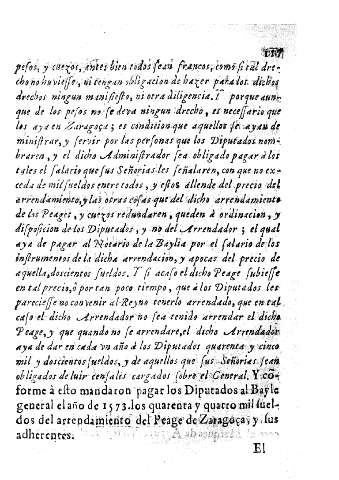 117
pesos, y cuezos, antes bien todos sean francos, como si tal dre-
cho no huviesse, ni tengan obligacion de hazer para dos dichos
drechos ningun manifiesto, ni otra diligencia. Y porque aun-
que de los pesos no se deva ningun drecho, es necessario que
los aya en Zaragoça; es condicion que aquellos se ayan de
ministrar, y servir por las personas que los Diputados nom-
braren, y el dicho Administrador sea obligado pagar à los
tales el salario que sus Señorias les señalaren, con que no ex-
ceda de mil sueldos entre todos, y estos allende del precio del
arrendamiento, y las otras cosas que del dicho arrendamiento
de los Peages, y cuezos redundaren, queden à ordinacion, y
disposicion de los Diputados, y no del Arrendador; el qual
aya de pagar al Notario de la Baylia por el salario de los
instrumentos de la dicha arrendacion, y apocas del precio de
aquella, doscientos sueldos. Y si acaso el dicho Peage subiesse
en tal precio, ò por tan poco tiempo, que à los Diputados les
pareciesse no convenir al Reyno tenerlo arrendado, que en tal
caso el dicho Arrendador no sea tenido arrendar el dicho
Peage, y que quando no se arrendare, el dicho Arrendador
aya de dar en cada un año à los Diputados quarenta y cinco
mil y doscientos sueldos, y de aquellos que sus Señorias sean
obligados de luir censales cargados sobre el General. Y cō-
forme à esto mandaron pagar los Diputados al Bayle
general el año de 1573. los quarenta y quatro mil suel-
dos del arrendamiento del Peage de Zaragoça, y sus
adherentes.
El